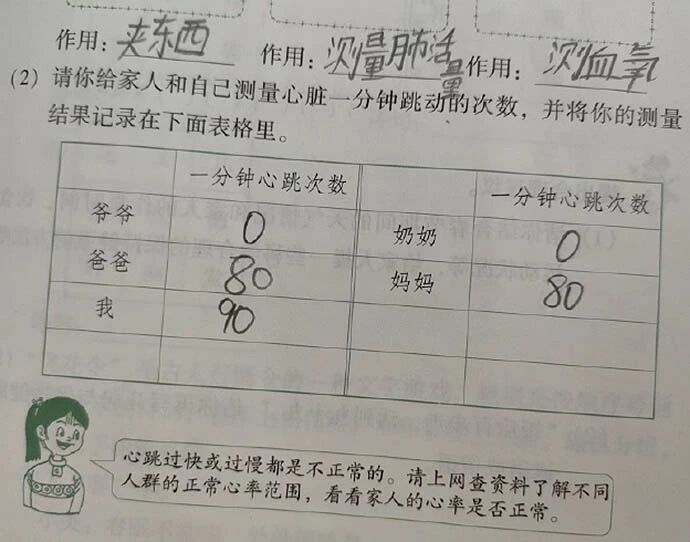 作用：夹东西 作用：测量肺活量 作用：测血氧
（2）请你给家人和自己测量心脏一分钟跳动的次数，并将你的测量
结果记录在下面表格里。
一分钟心跳次数 一分钟心跳次数
爷爷 0 奶奶 0
爸爸 80 妈妈 80
我 90
心跳过快或过慢都是不正常的。请上网查资料了解不同
人群的正常心率范围，看看家人的心率是否正常。